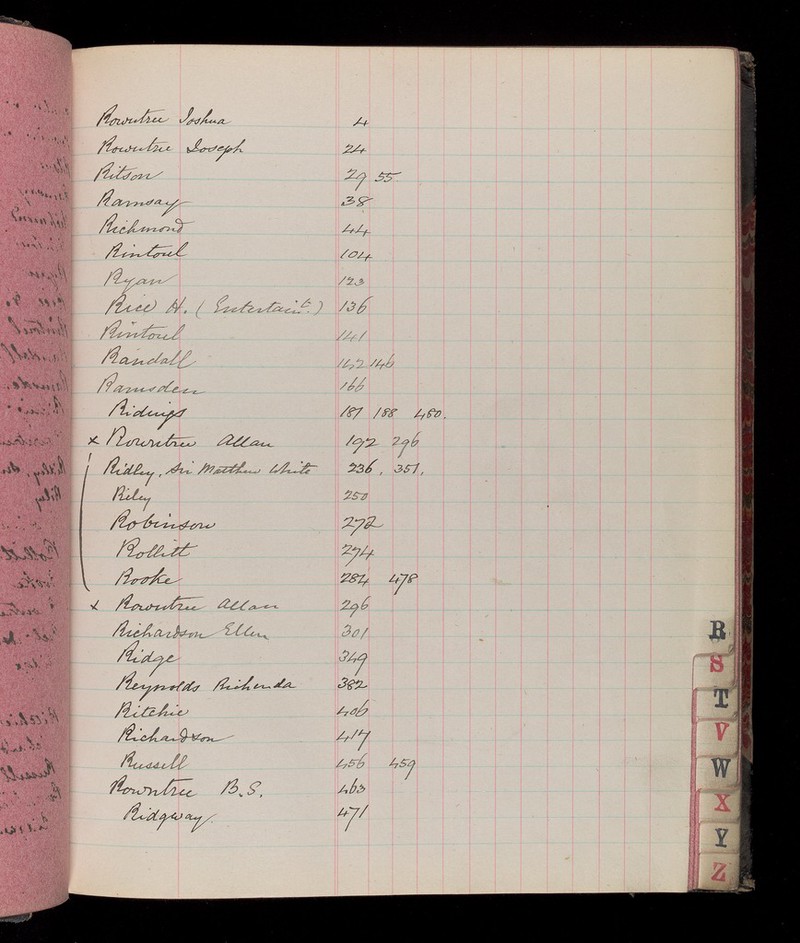 Rowntree Joshua 4
Rowntree Joseph 24
Ritson 29 55
Ramsay 38
Richmond 44
Rintoul 104
Ryan 123
Rice H. (Entertaint.) 136
Rintoul 141
Randall 142 146
Ramsden 166
Ridings 187 188 480.
x Rowntree Allan 192 296
Ridley, Sir Matthew White 236, 351,
Riley 250
Robinson 272
Rollitt 274
Rooke 284 478
x Rowntree Allan 296
Richardson Ellen 301
Ridge 349
Reynolds Richenda 382
Ritchie 406
Richardson 417
Russell 456 459
Rowntree B.S. 463
Ridgway. 471
R
S
T
V
W
X
Y
Z